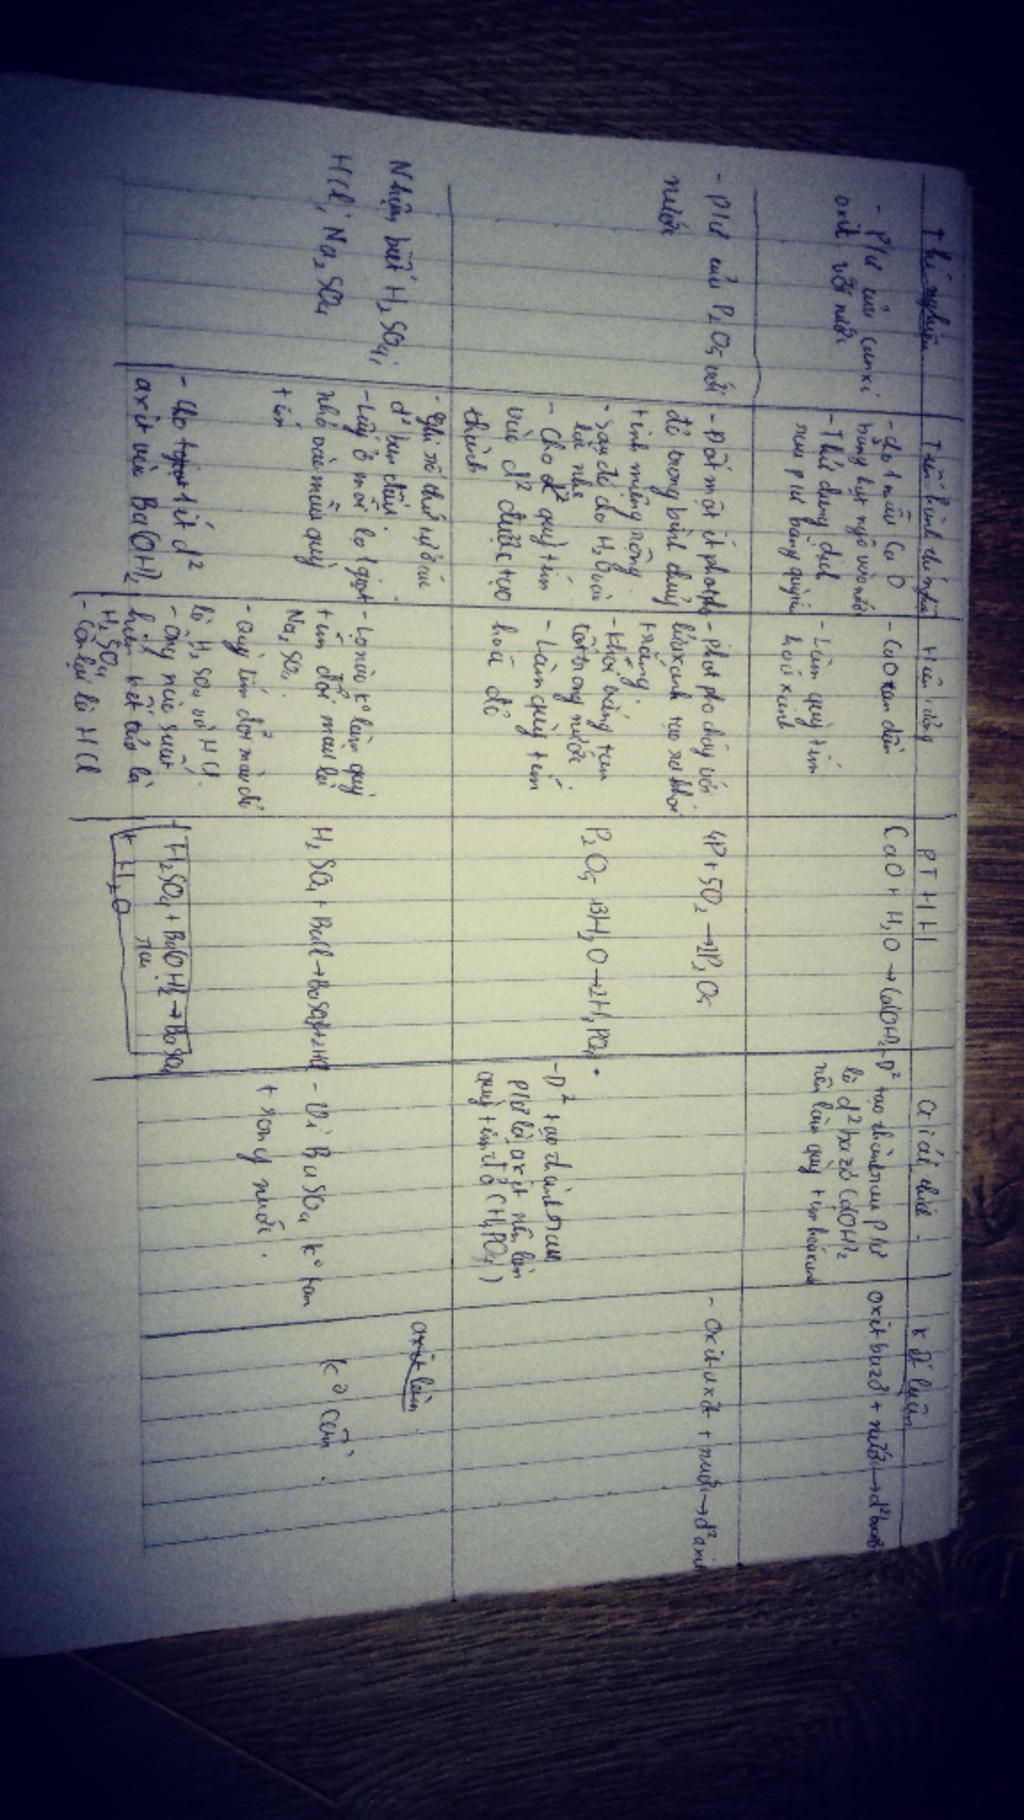 Thí nghiệm
Tiến hành thí nghiệm
Hiện tượng
PTHH
Giải thích
Kết luận
- P/ư của canxi
oxit với nước
- cho 1 mẩu CaO
bằng hạt ngô vào nước
- Thử dung dịch
sau p/ư bằng quỳ tím
- CaO tan dần
- Làm quỳ tím
hoá xanh
CaO + H2O → Ca(OH)2
- D² tạo thành sau p/ư
là d² bazơ Ca(OH)2
nên làm quỳ tím hoá xanh
oxit bazơ + nước → d² bazơ
- P/ư của P2O5 với
nước
- Đốt một ít photpho
đỏ trong bình thủy
tinh miệng rộng
- Sau đó cho H2O vào
lắc nhẹ
- Cho d² quỳ tím
vào d² được tạo
thành
- photpho cháy với
lửa xanh tạo ra khói
trắng
- Khói trắng tan
hết trong nước
- Làm quỳ tím
hoá đỏ
4P + 5O2 → 2P2O5
P2O5 + 3H2O → 2H3PO4
- D² tạo thành sau
p/ư là axit nên làm
quỳ tím đỏ (H3PO4)
- oxit axit + nước → d² axit
Nhận biết H2SO4;
HCl; Na2SO4
- Ghi số thứ tự ở các
d² ban đầu
- Lấy ở mỗi lọ 1 giọt
nhỏ vào mẩu quỳ
tím
- Cho 1 ít d²
axit vào Ba(OH)2
- Lọ nào k° làm quỳ
tím đổi màu là
Na2SO4
- Quỳ tím đổi màu đỏ
là H2SO4 và HCl
- ống nào xuất
hiện kết tủa là
H2SO4
- Còn lại là HCl
H2SO4 + BaCl → BaSO4 + 2HCl
H2SO4 + Ba(OH)2 → BaSO4
+ H2O
- Vì BaSO4 k° tan
trong nước.
axit làm
k° cần.